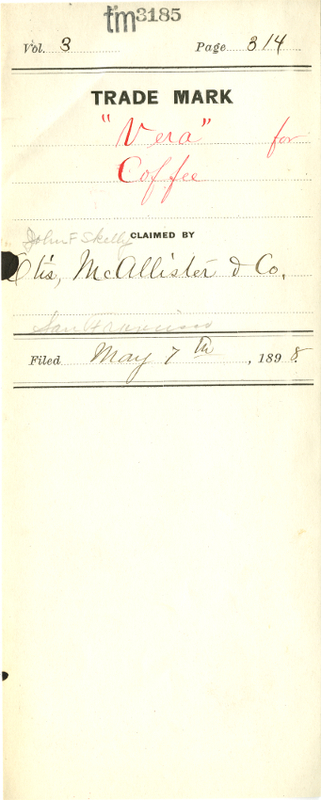 tm3185
Vol. 3 Page 314
TRADE MARK
"Vera" for
Coffee
John F Skelly CLAIMED BY
Otis, McAllister & Co.
San Francisco
Filed May 7th, 1898.